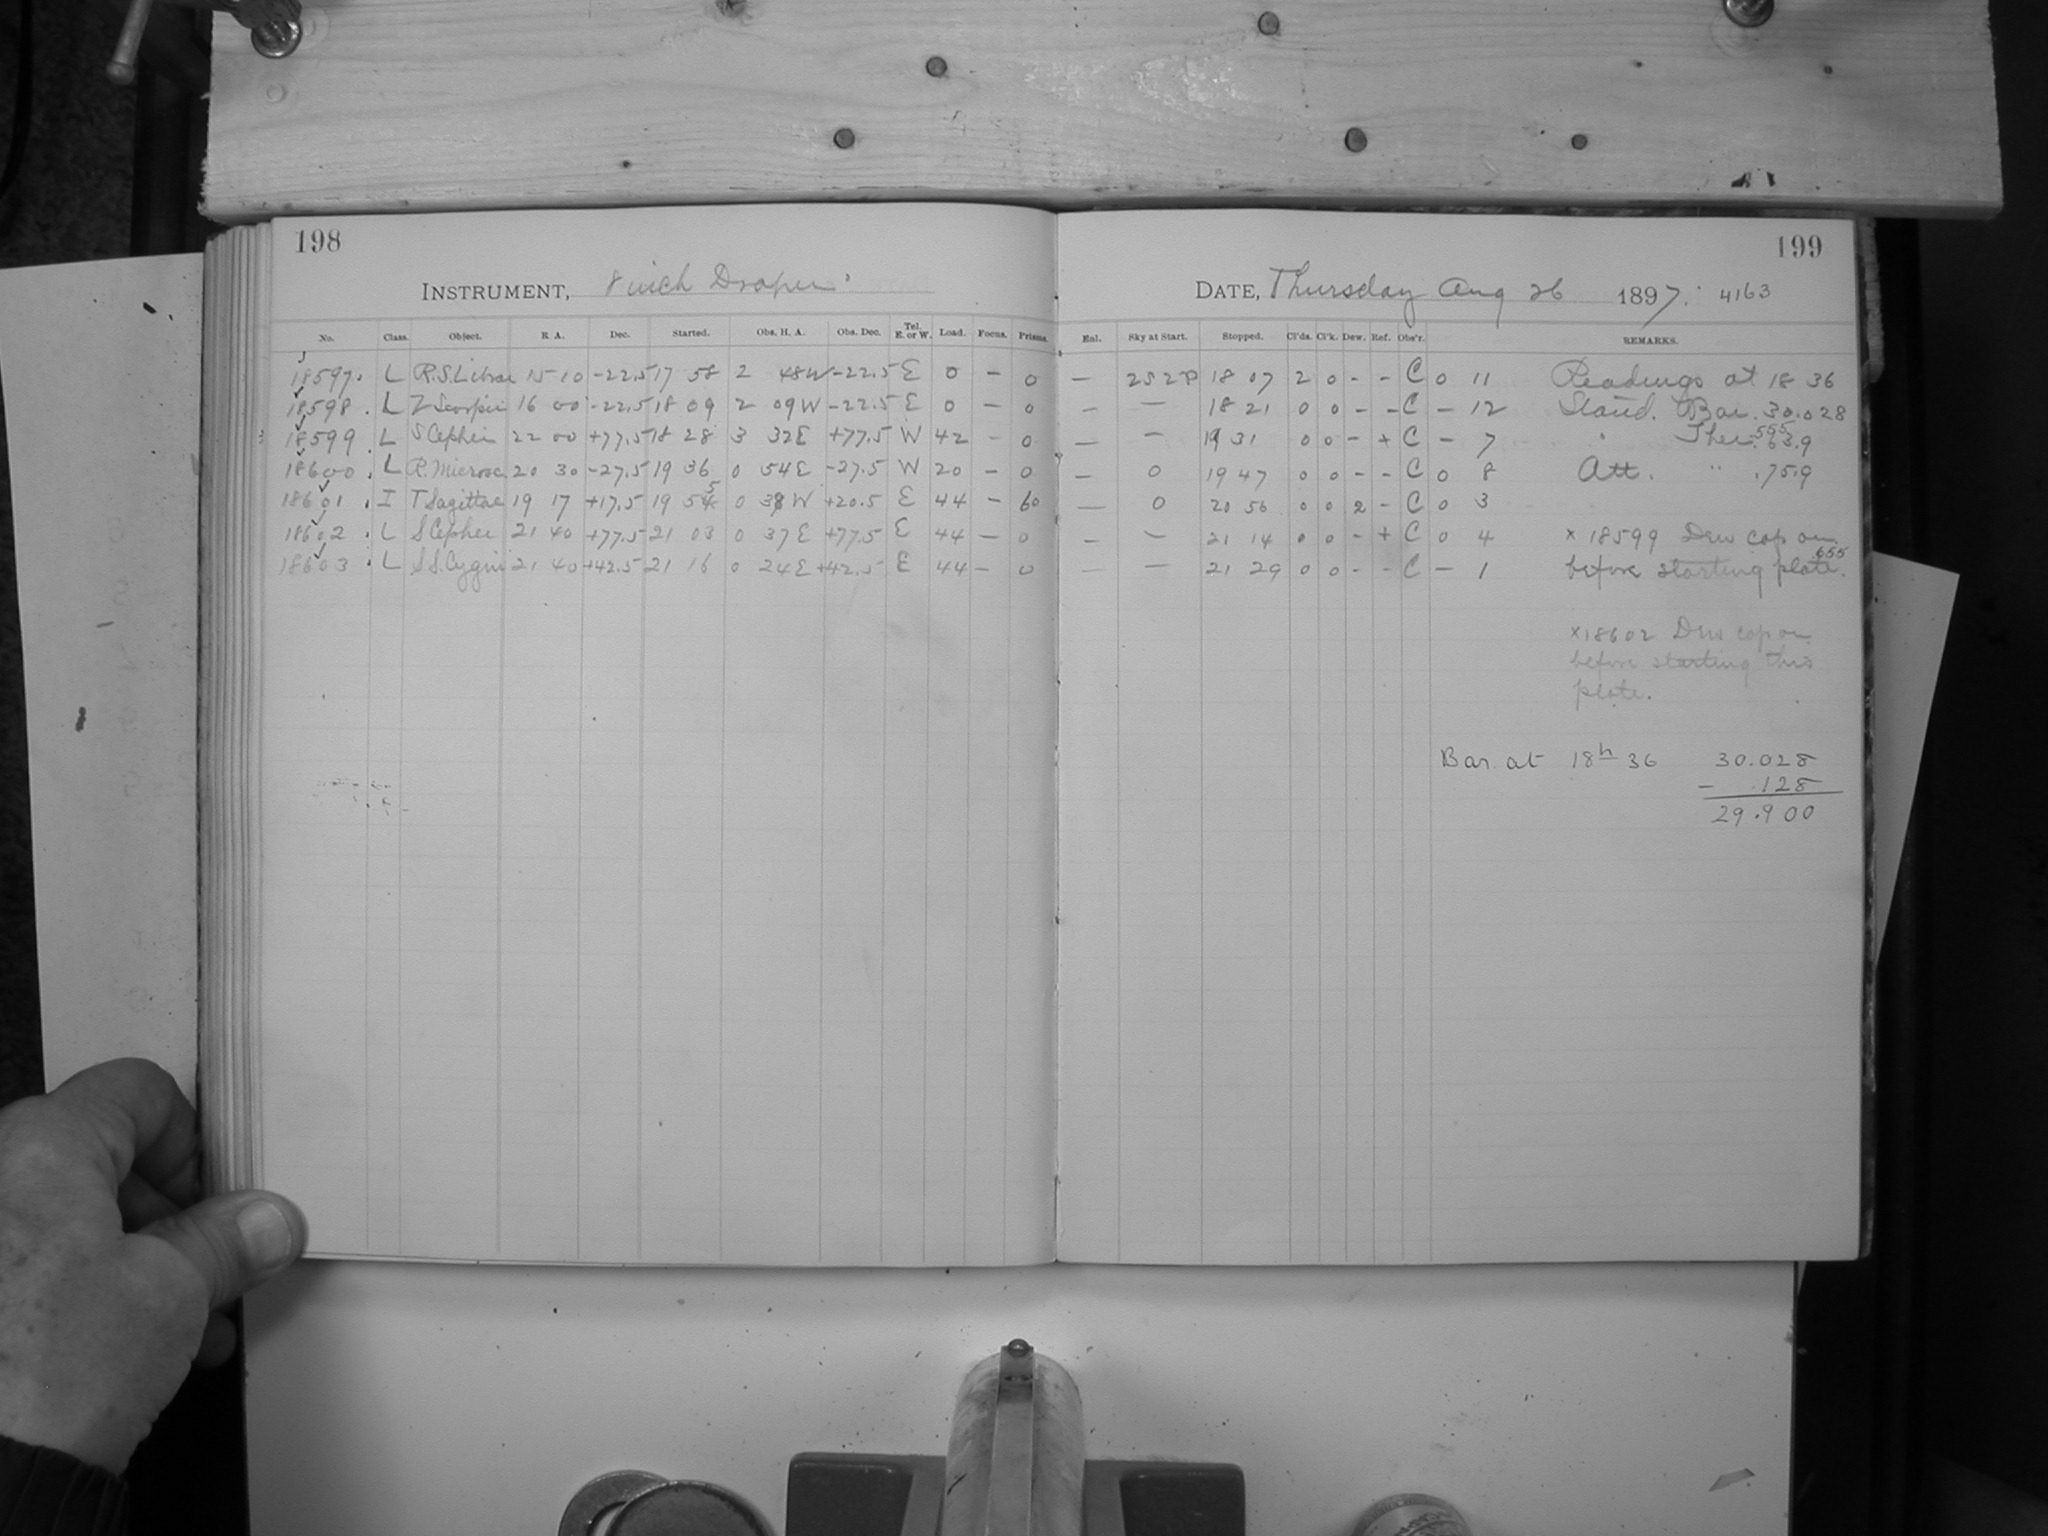 198
199
INSTRUMENT, 8 inch Draper
DATE, Thursday Aug 26 1897. 4163
No. Class. Object. R. A. Dec. Started. Obs. H. A. Obs. Dec. Tel. E. or W. Load. Focus. Prisms. Enl. Sky at Start. Stopped. Cl'ds. Cl'k. Dew. Ref. Obs'r. REMARKS.
18597. L R.S. Librae 15 10 -22.5 17 58 2 48W -22.5 E 0 - 0 - 18 07 2 0 - - C 0 11 Readings at 18 36
18598. L Z Scorpii 16 00 -22.5 18 09 2 09W -22.5 E 0 - 0 - - 18 21 0 0 - - C - 12 Stand. Bar. 30.028
18599. L S Cephei 22 00 +77.5 18 28 3 32E +77.5 W 42 - 0 - - 19 31 0 0 - + C - 7 " Ther. 63.9
18600. L R. Microsc 20 30 -27.5 19 36 0 54E -27.5 W 20 - 0 - 0 19 47 0 0 - - C 0 8 Att. " 75.9
18601. I T Sagittae 19 17 +17.5 19 54 0 W +20.5 E 44 - 60 - 0 20 56 0 0 2 - C 0 3
18602. L S Cephei 21 40 +77.5 21 03 0 37E +77.5 E 44 - 0 - - 21 14 0 0 - + C 0 4 × 18599 Dew cap on
18603. L S.S. Cygni 21 40 +42.5 21 16 0 24E +42.5 E 44 - 0 - - 21 29 0 0 - - C - 1 before starting plate.
×18602 Dew cap on
before starting this
plate.
Bar. at 18h 36 30.028
- .128
29.900